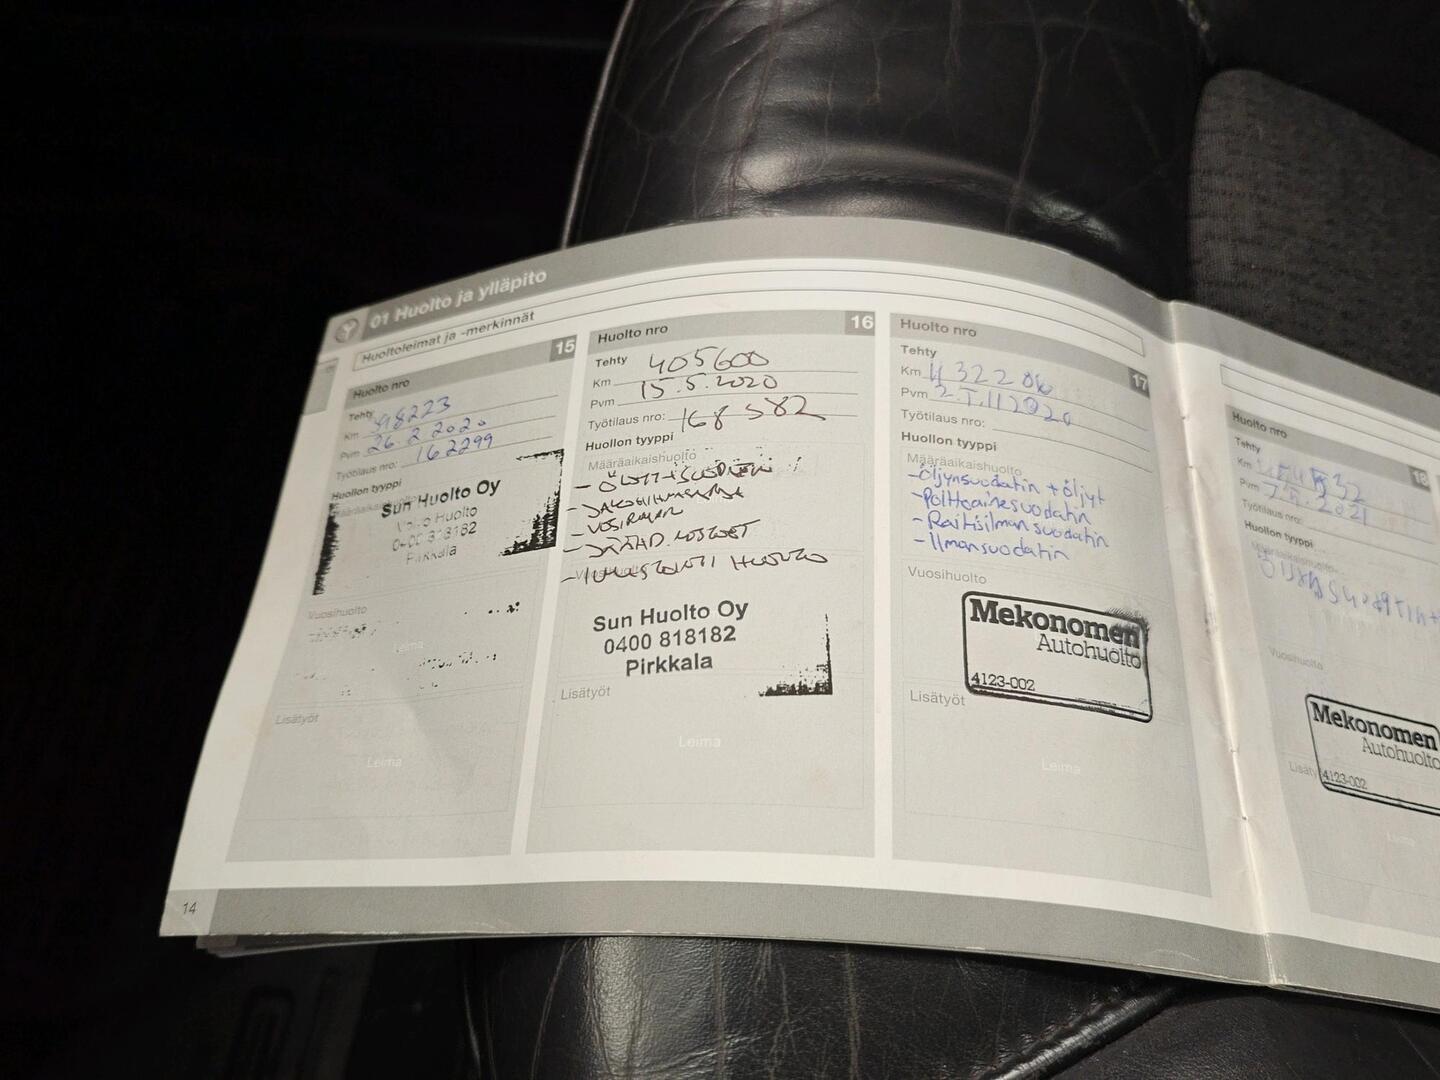 01 Huolto ja ylläpito
Huoltoleimat ja -merkinnät
Huolto nro 15
Tehty
Km 398223
Pvm 26.2.2020
Työtilaus nro: 162299
Huollon tyyppi
Määräaikaishuolto
Sun Huolto Oy
Volvo Huolto
0400 818182
Pirkkala
Vuosihuolto
Leima
Lisätyöt
Leima
Huolto nro 16
Tehty
Km 405600
Pvm 15.5.2020
Työtilaus nro: 168582
Huollon tyyppi
Määräaikaishuolto
Vuosihuolto
Sun Huolto Oy
0400 818182
Pirkkala
Lisätyöt
Leima
Huolto nro 17
Tehty
Km
Pvm
Työtilaus nro:
Huollon tyyppi
Määräaikaishuolto
-Öljynsuodatin + öljyt
-Polttoainesuodatin
-Raitisilmansuodatin
-Ilmansuodatin
Vuosihuolto
Mekonomen
Autohuolto
4123-002
Lisätyöt
Leima
Huolto nro 18
Tehty
Km
Pvm
Työtilaus nro:
Huollon tyyppi
Määräaikaishuolto
Vuosihuolto
Mekonomen
Autohuolto
4123-002
Leima
14